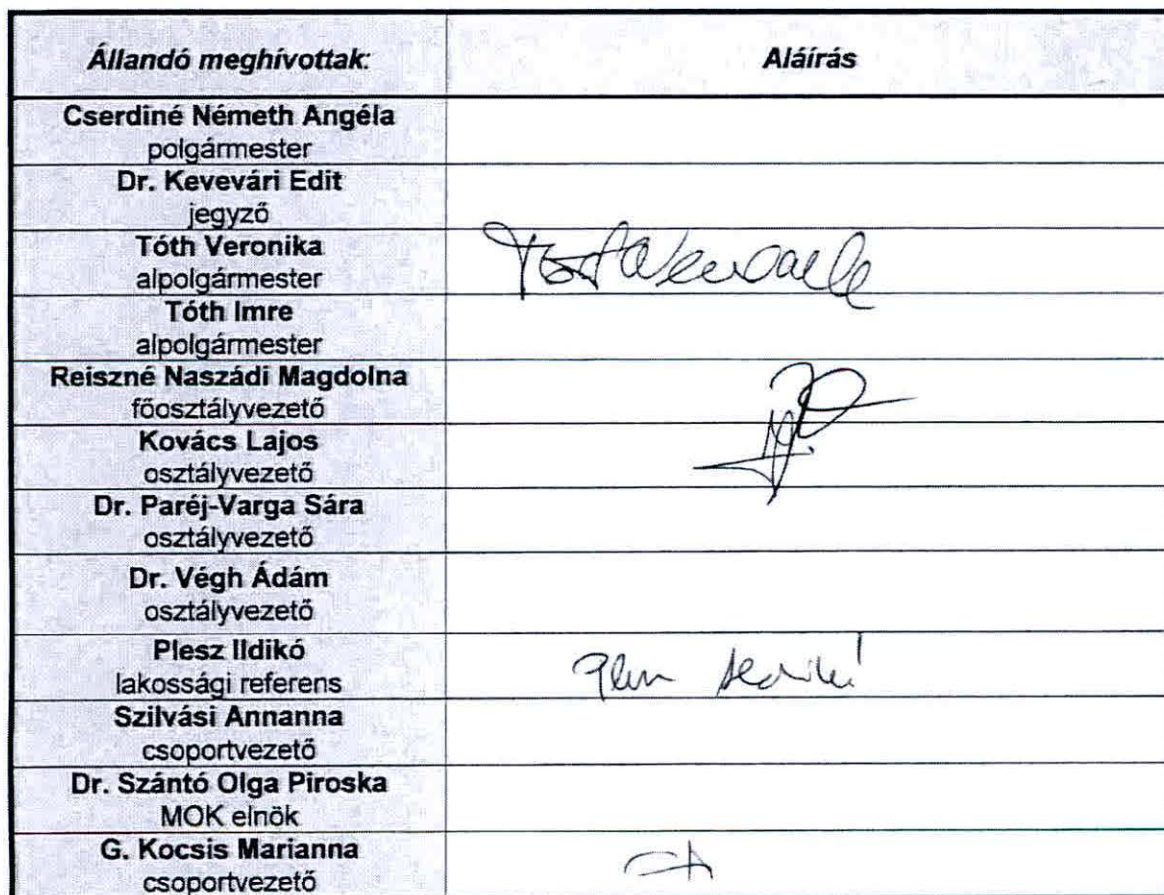 Állandó meghívottak: Aláírás
Cserdiné Németh Angéla
polgármester
Dr. Kevevári Edit
jegyző
Tóth Veronika
alpolgármester
Tóth Imre
alpolgármester
Reiszné Naszádi Magdolna
főosztályvezető
Kovács Lajos
osztályvezető
Dr. Paréj-Varga Sára
osztályvezető
Dr. Végh Ádám
osztályvezető
Plesz Ildikó
lakossági referens
Szilvási Annanna
csoportvezető
Dr. Szántó Olga Piroska
MOK elnök
G. Kocsis Marianna
csoportvezető